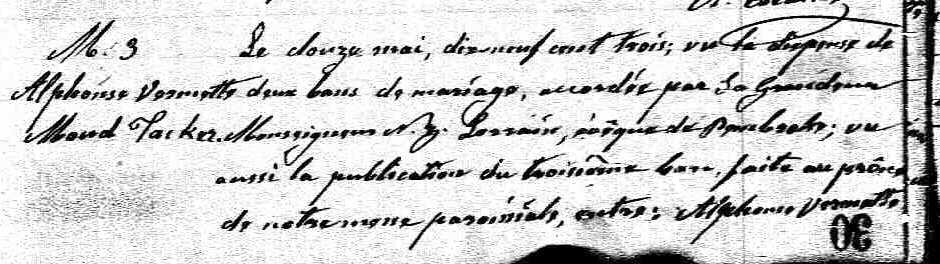 M. 3 Le douze mai, dix neuf cent trois; vu la dispense de
Alphonse Vermette deux bans de mariage, accordée par Sa Grandeur
Maud Tacker Monseigneur N. Z. Lorrain, évêque de Pembroke; vu
aussi la publication du troisième ban, faite au prône
de notre messe paroissiale, entre; Alphonse Vermette
30